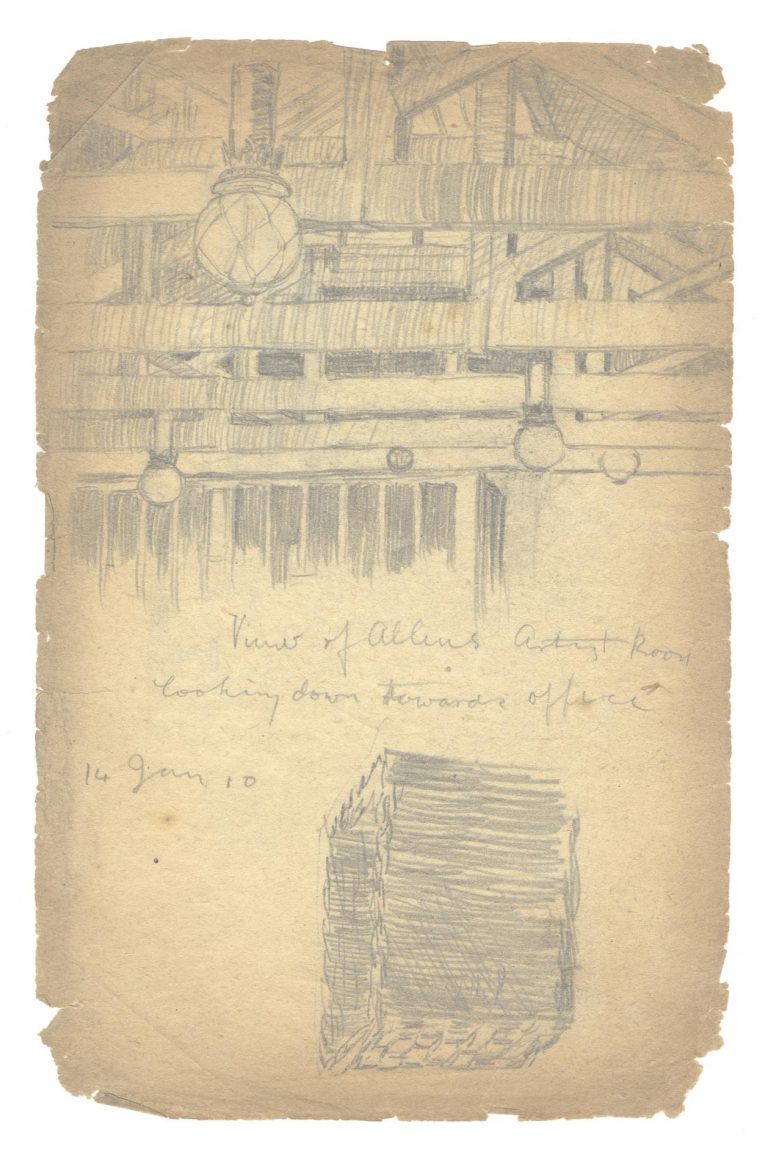 View of Allens Artist Room
looking down towards office
14 Jan 10